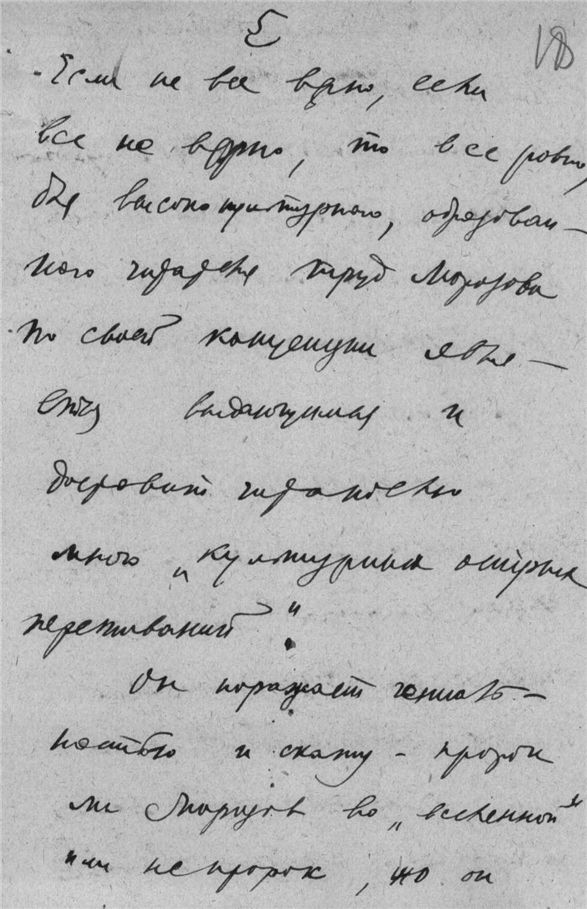 5
18
Если не все вѣрно, если
все не вѣрно, то все ровно,
для высококультурного, образован-
ного читателя труд Морозова
по своей концепции явля-
ется выдающимся и
доставит читателю
много „культурных острых
переживаний".
Он поражает гениаль-
ностью и скажу - пророк
ли Морозов во „вселенной"
или не пророк, но он